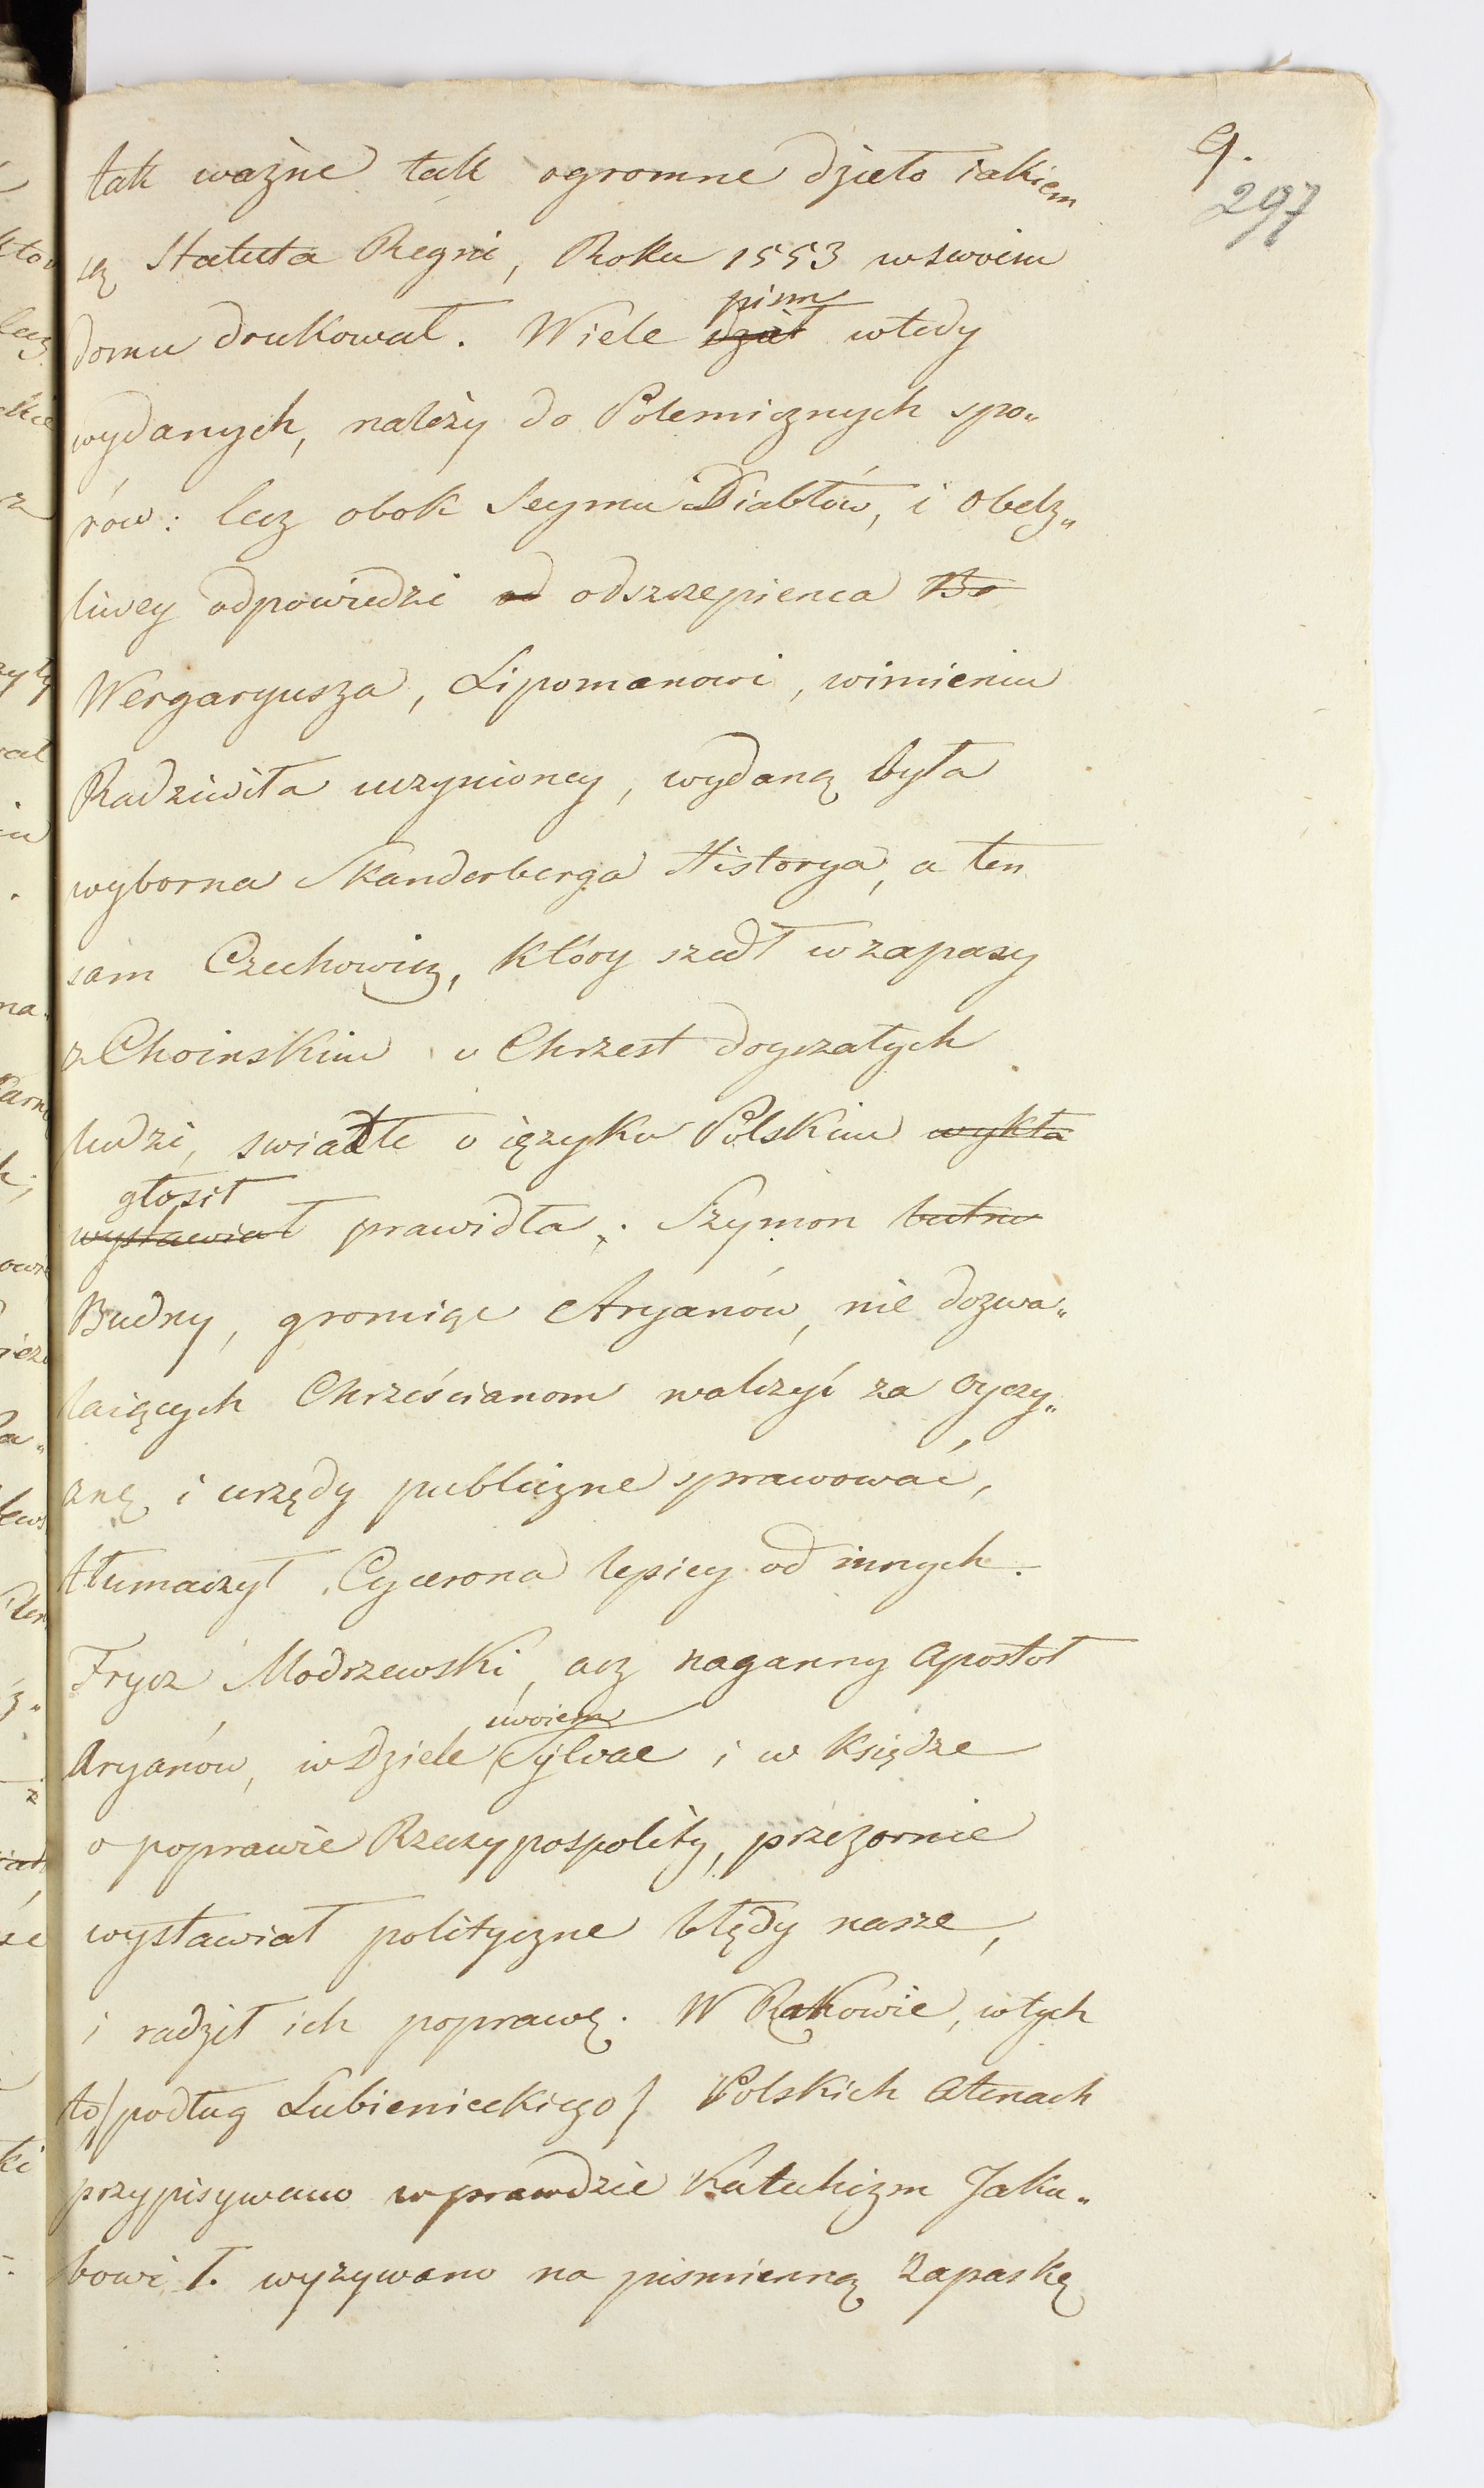 9.
297
tak ważne tak ogromne dzieło iakiem
są Statuta Regni, Roku 1553 w swoim
pism
domu drukował. Wiele dzieł wtedy
wydanych, należy do Polemicznych spo„
rów: lecz obok Seymu Diabłów, i obelz„
liwey odpowiedzi od odszczepienca Bo
Wergaryusza, Lipomanowi, wimieniu
Radziwiła uczynioney, wydaną była
wyborna Skanderberga Historya, a ten
sam Czechowicz, który szedł w zapasy
z Choinskim o Chrzest doyrzałych
ludzi, swiatłe o ięzyku Polskim wykła
głosił
wystawiał prawidła. Szymon butnu
Budny, gromiąc Aryanów, nie dozwa„
laiących Chrześcianom walczyć za oyczy„
znę i urzędy publiczne sprawować,
tłumaczył Cycerona lepiey od innych.
Frycz Modrzewski, acz naganny apostoł
swoiem
Aryanów, w dziele Sylvae i w księdze
o poprawie Rzeczypospolity, przezornie
wystawiał polityczne błędy nasze,
i radził ich poprawę. W Rakowie, w tych
to/podług Lubienieckiego/ Polskich Atenach
przypisywano wprawdzie Katechizm Jaku„
bowi I. wyzywano na pismienną zapaskę